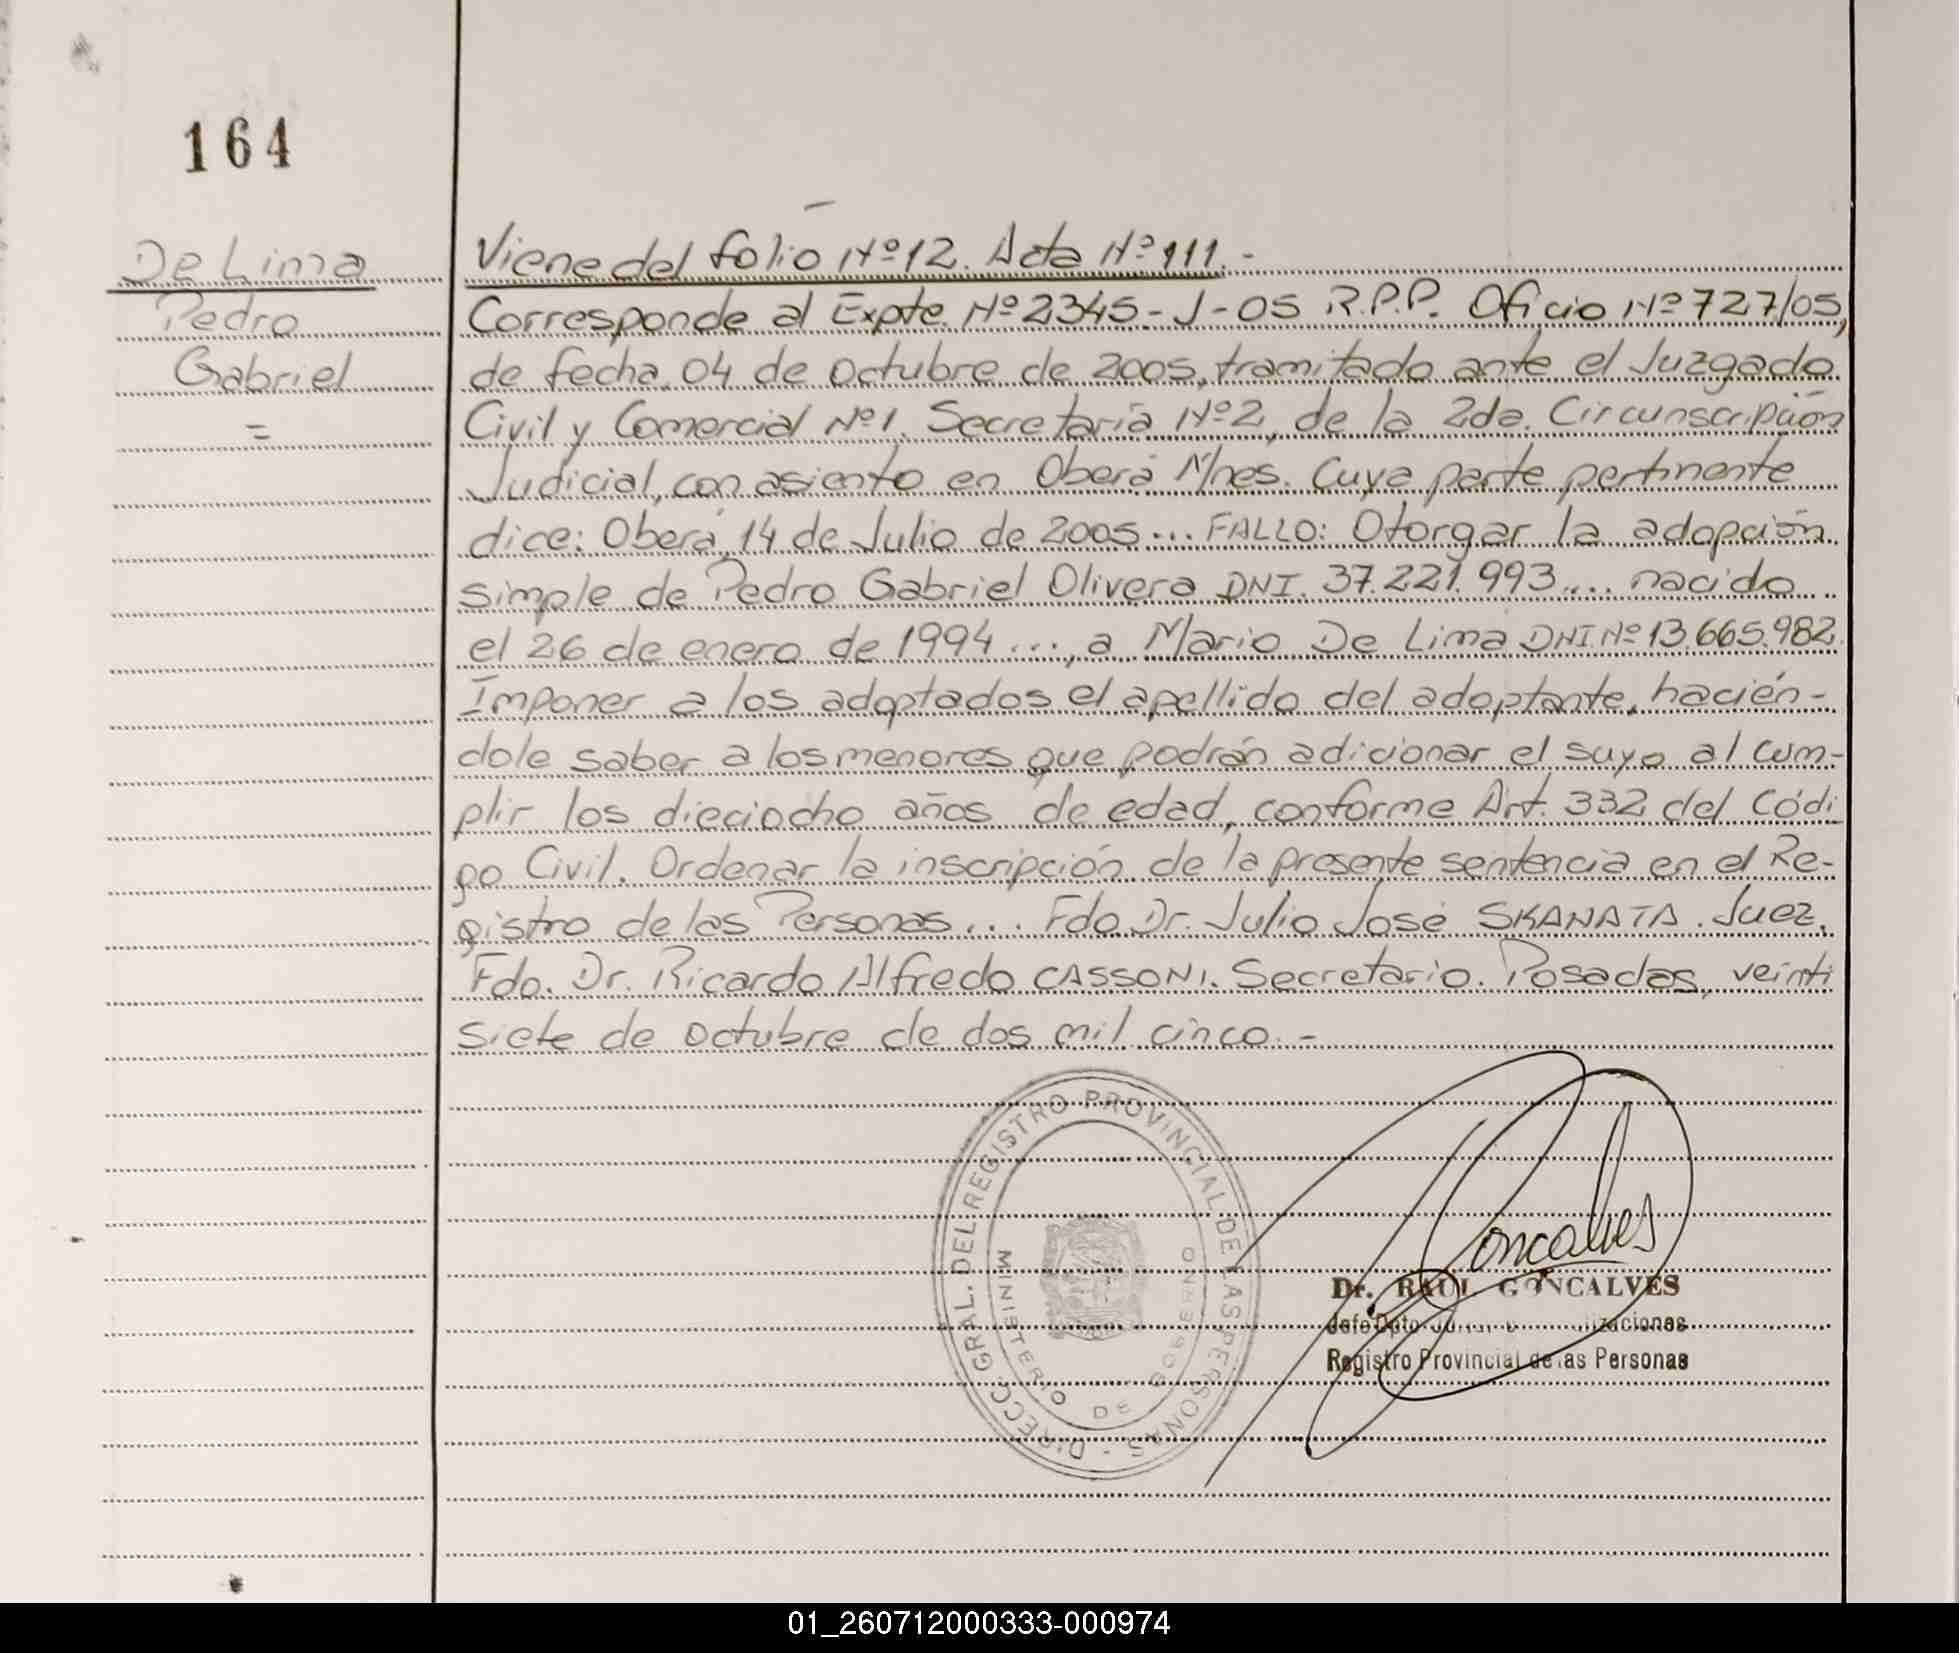 164
De Lima
Pedro
Gabriel
=
Viene del folio Nº 12. Acta Nº 111.-
Corresponde al Expte. Nº 2345-J-05 R.P.P. Oficio Nº 727/05,
de fecha 04 de octubre de 2005, tramitado ante el Juzgado
Civil y Comercial Nº 1. Secretaría Nº 2, de la 2da. Circunscripción
Judicial, con asiento en Oberá Mnes. Cuya parte pertinente
dice: Oberá, 14 de Julio de 2005... FALLO: Otorgar la adopción
simple de Pedro Gabriel Olivera DNI. 37.221.993.... nacido
el 26 de enero de 1994 ..., a Mario De Lima DNI. Nº 13.665.982.
Imponer a los adoptados el apellido del adoptante, hacién-
dole saber a los menores que podrán adicionar el suyo al cum-
plir los dieciocho años de edad, conforme Art. 332 del Códi-
go Civil. Ordenar la inscripción de la presente sentencia en el Re-
gistro de las Personas... Fdo. Dr. Julio José SKANATA. Juez.
Fdo. Dr. Ricardo Alfredo CASSONI. Secretario. Posadas, veinti
siete de octubre de dos mil cinco.-
DIRECC. GRAL. DEL REGISTRO PROVINCIAL DE LAS PERSONAS -
MINISTERIO DE GOBIERNO
Goncalves
Dr. RAUL GONCALVES
Jefe Dpto.
Registro Provincial de las Personas
01_260712000333-000974